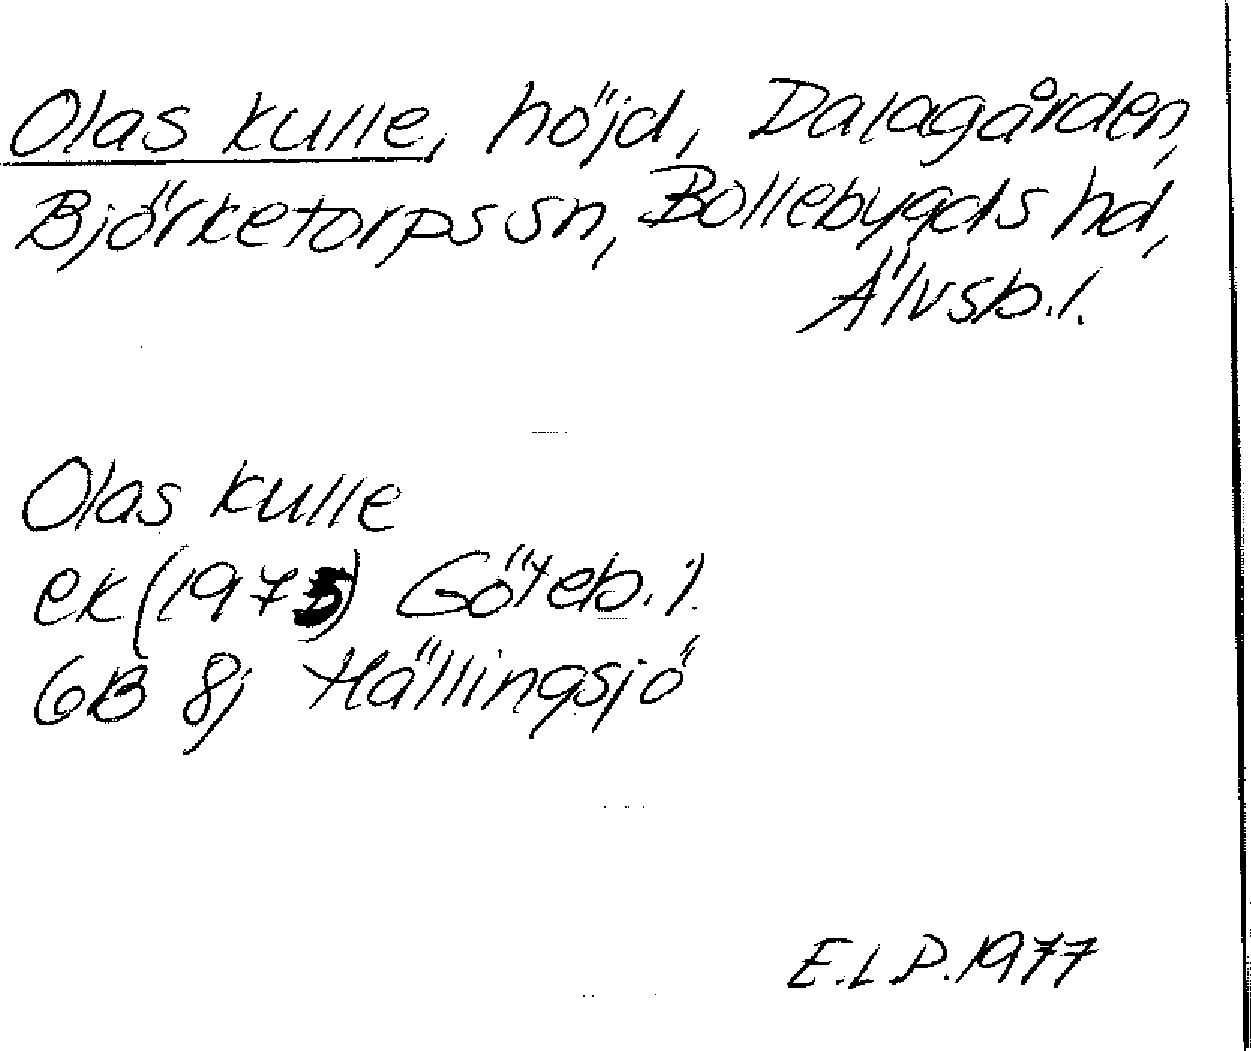 Olas kulle, höjd, Dalagården,
Björketorps sn, Bollebygds hd,
Älvsb. l.
Olas kulle
ek (1975) Göteb. l.
6B 8j Hällingsjö
E.L.P. 1977